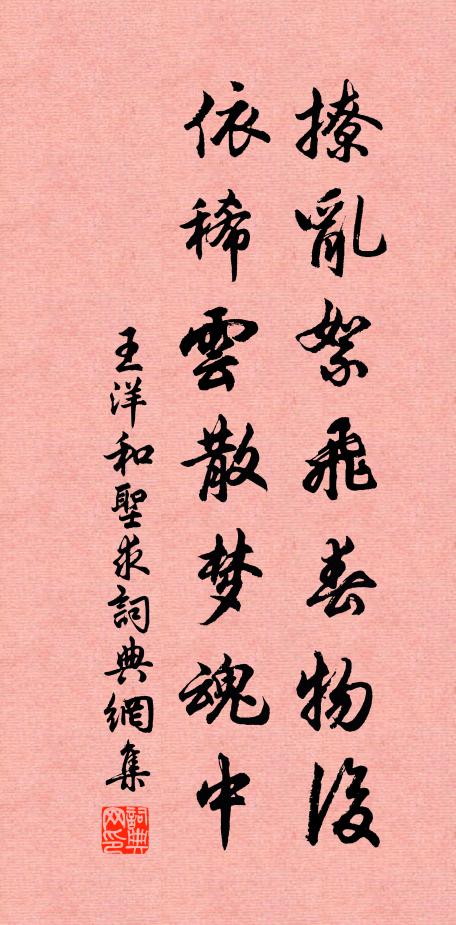 撩亂絮飛春物後
依稀雲散梦魂中
王洋和聖求詞典網集
詞典网印